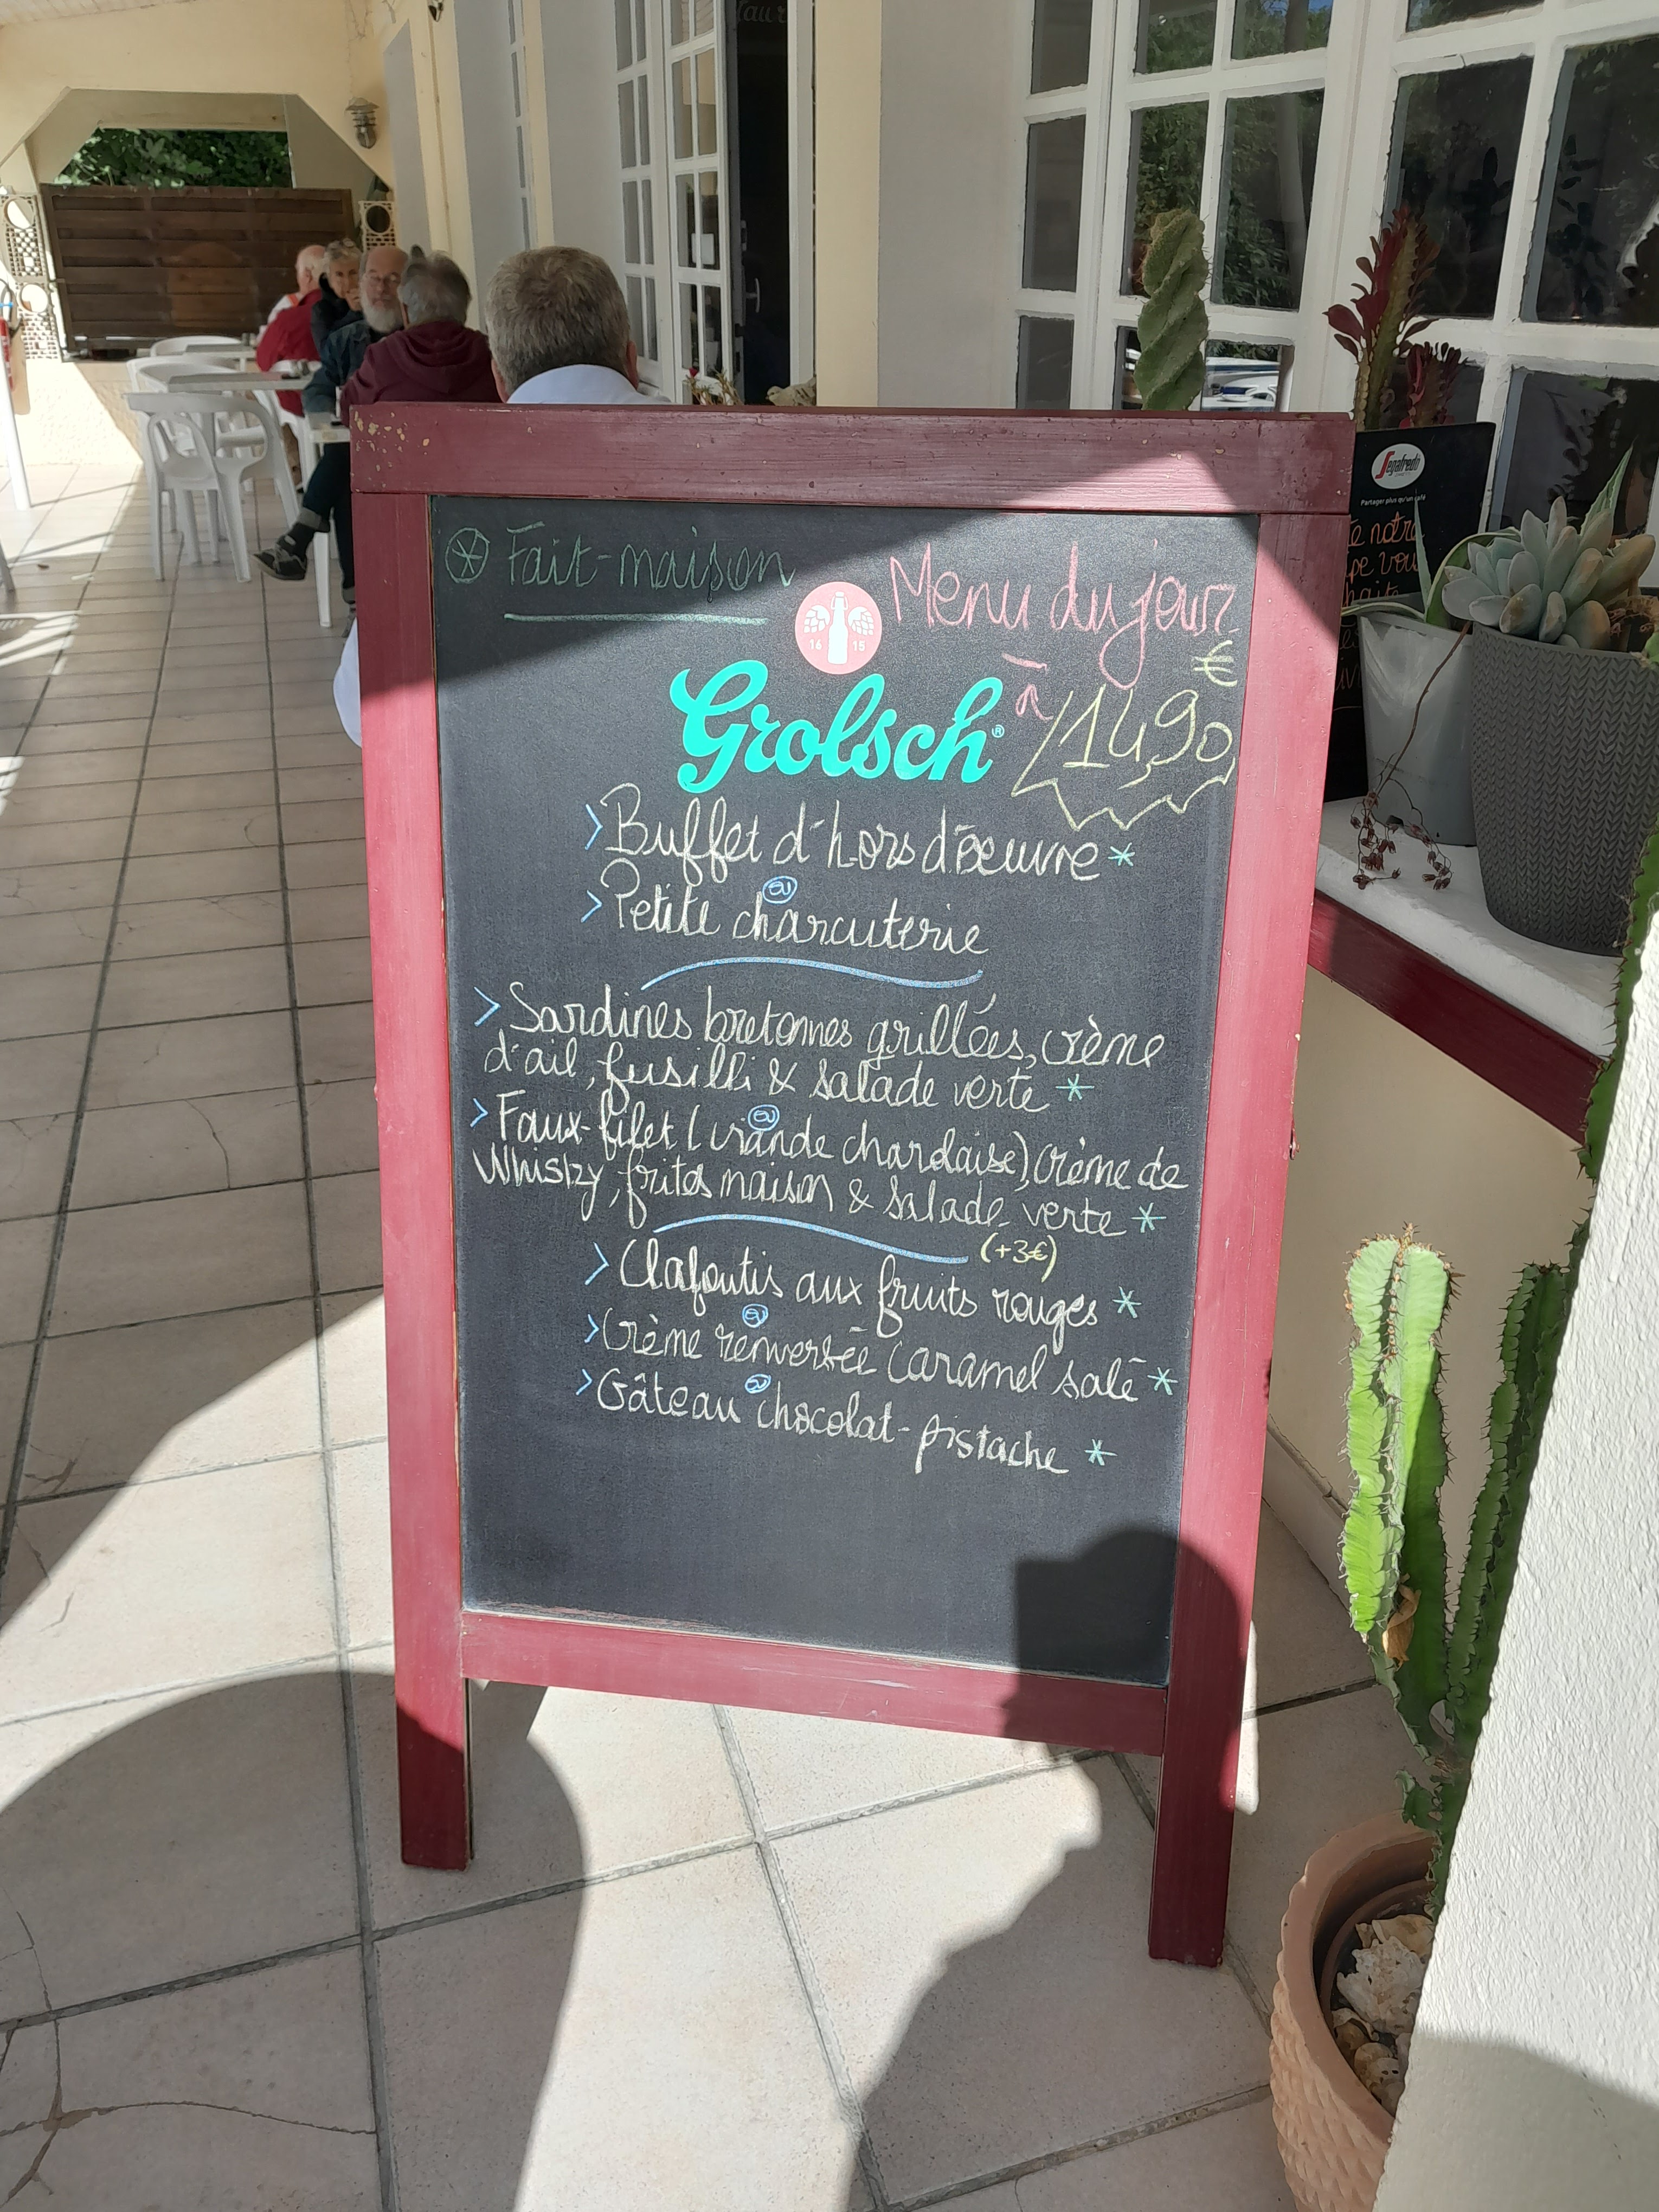 ⊛ Fait-maison
Menu du jour
à 14,90 €
16 15
Grolsch
> Buffet d'hors d'œuvre *
ou
> Petite charcuterie
> Sardines bretonnes grillées, crème
d'ail, fusilli & salade verte *
ou
> Faux-filet (viande charolaise), crème de
Whisky, frites maison & salade verte *
(+3€)
> Clafoutis aux fruits rouges *
ou
> Crème renversée caramel salé *
ou
> Gâteau chocolat-pistache *
Segafredo
Partager plus qu'un café
notre